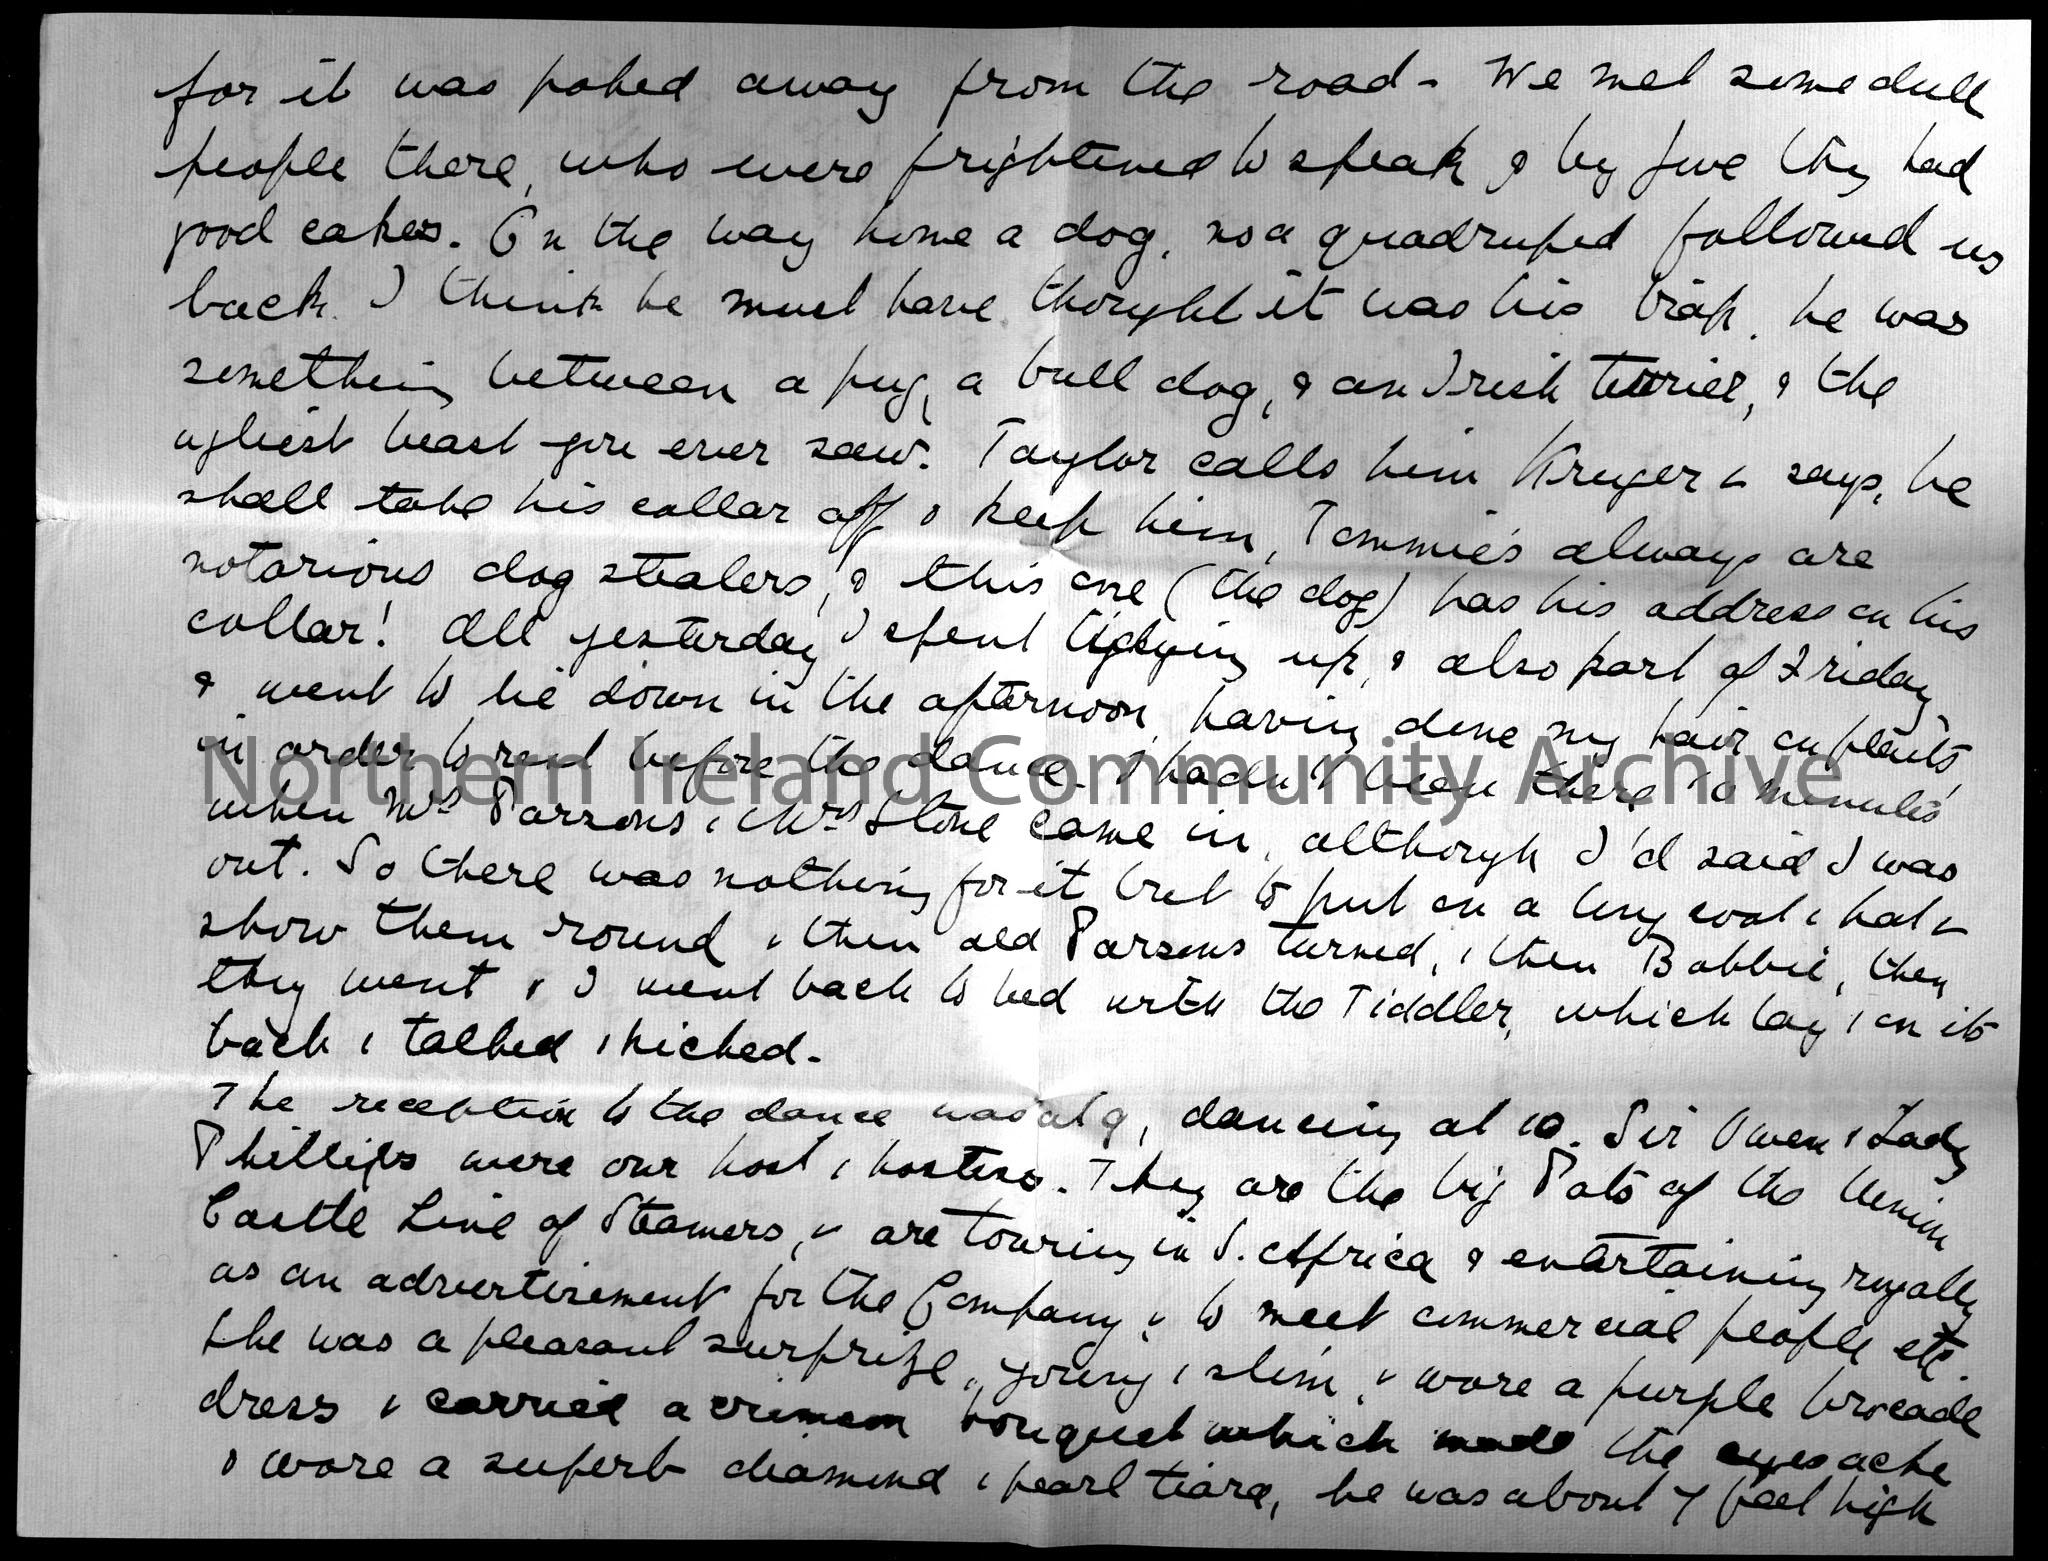 for it was poked away from the road - We met some dull
people there, who were frightened to speak & by Jove they had
good cakes. On the way home a dog, no a quadruped followed us
back. I think he must have thought it was his trap, he was
something between a pug, a bull dog, & an Irish terrier, & the
ugliest beast you ever saw. Taylor calls him Kruger & says, he
shall take his collar off & keep him, Tommie's always are
notorious dog stealers, & this one (the dog) has his address on his
collar! All yesterday I spent tidying up, & also part of Friday,
& went to lie down in the afternoon, having done my hair in plaits,
in order to rest before the dance. I hadn't been there 10 minutes
when Mrs Parsons & Mrs Stone came in, although I'd said I was
out. So there was nothing for it but to put on a long coat & hat &
show them round & then old Parsons turned, & then Bobbie, then
they went & I went back to bed with the Tiddler, which lay on its
back & talked & kicked.
The reception to the dance was at 9, dancing at 10. Sir Owen & Lady
Phillips were our host & hostess. They are the big Pots of the Union
Castle Line of Steamers, & are touring in S. Africa & entertaining royally
as an advertisement for the Company & to meet commercial people etc.
She was a pleasant surprise, young & slim, & wore a purple brocade
dress & carried a crimson bouquet which made the eyes ache
& wore a superb diamond & pearl tiara, he was about 7 feet high
Northern Ireland Community Archive